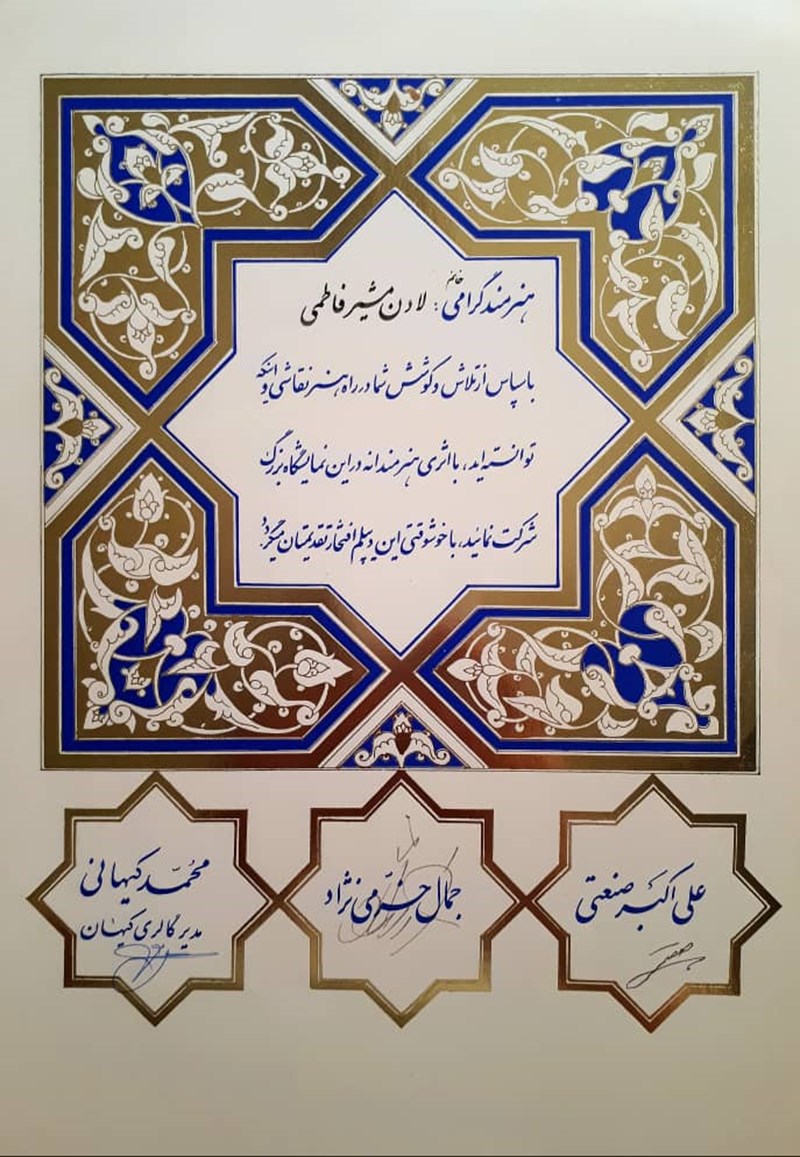 هنرمند گرامی خانم : لادن مشیر فاطمی
با سپاس از تلاش و کوشش شما در راه هنر نقاشی و اینکه
توانسته اید، با اثری هنرمندانه در این نمایشگاه بزرگ
شرکت نمائید، با خوشوقتی این دیپلم افتخار تقدیمتان میگردد
علی اکبر صنعتی
جمال خرّمی نژاد
محمّد کیهانی
مدیر گالری کیهان